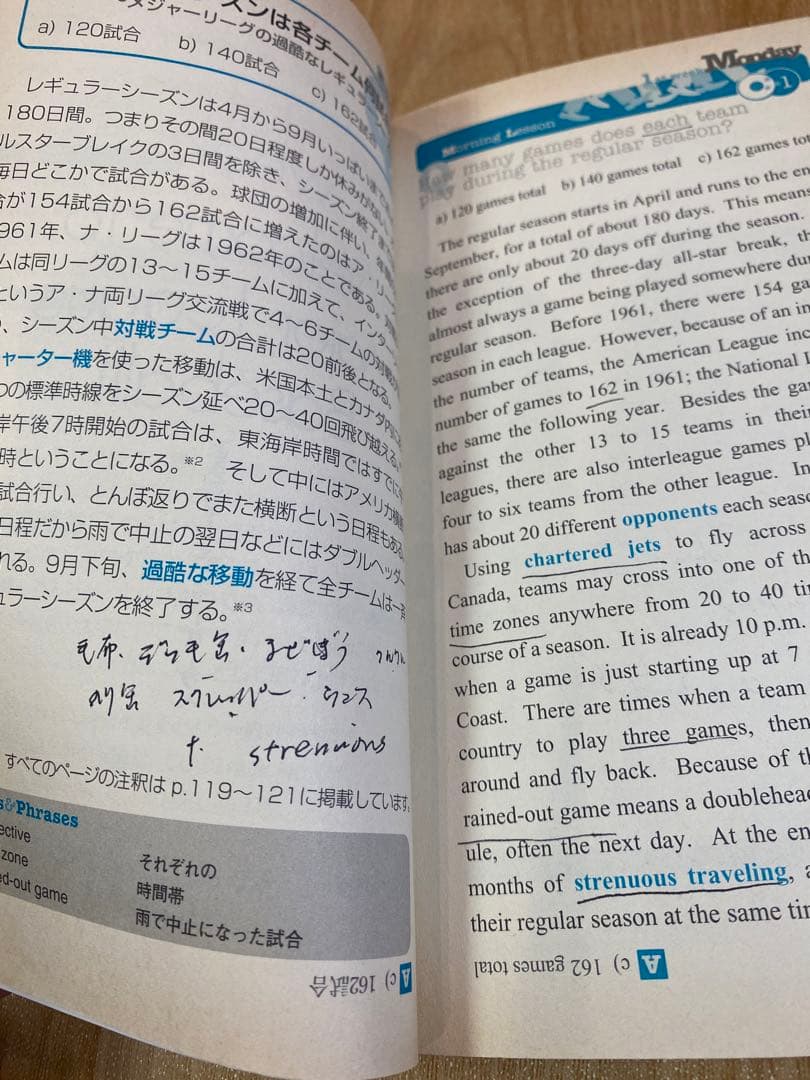 ズンは各チーム
メジャーリーグの過酷なレギュラー
a) 120試合 b) 140試合 c) 162試合
レギュラーシーズンは4月から9月いっぱいまで
180日間。つまりその間20日程度しか休みがない。
ルスターブレイクの3日間を除き、シーズン終了まで
毎日どこかで試合がある。球団の増加に伴い、
合が154試合から162試合に増えたのはア・リー
1961年、ナ・リーグは1962年のことである。
ムは同リーグの13〜15チームに加えて、インター
というア・ナ両リーグ交流戦で4〜6チームの対戦
、シーズン中対戦チームの合計は20前後となる。
ャーター機を使った移動は、米国本土とカナダ内
つの標準時線をシーズン延べ20〜40回飛び越える。
岸午後7時開始の試合は、東海岸時間ではすでに
時ということになる。※2 そして中にはアメリカ横断
試合行い、とんぼ返りでまた横断という日程もある。
日程だから雨で中止の翌日などにはダブルヘッダー
れる。9月下旬、過酷な移動を経て全チームは一斉
ュラーシーズンを終了する。※3
毛布、
スリッパー
strenuous
すべてのページの注釈は p.119〜121に掲載しています。
s&Phrases
ective それぞれの
zone 時間帯
ed-out game 雨で中止になった試合
A c) 162試合
Monday
1st week
8-1
Morning Lesson
How many games does each team
play during the regular season?
a) 120 games total b) 140 games total c) 162 games tot
The regular season starts in April and runs to the en
September, for a total of about 180 days. This mean
there are only about 20 days off during the season.
the exception of the three-day all-star break, th
almost always a game being played somewhere du
regular season. Before 1961, there were 154 ga
season in each league. However, because of an in
the number of teams, the American League inc
number of games to 162 in 1961; the National L
the same the following year. Besides the ga
against the other 13 to 15 teams in their
leagues, there are also interleague games pl
four to six teams from the other league. In
has about 20 different opponents each seas
Using chartered jets to fly across
Canada, teams may cross into one of th
time zones anywhere from 20 to 40 tin
course of a season. It is already 10 p.m.
when a game is just starting up at 7
Coast. There are times when a team
country to play three games, then
around and fly back. Because of th
rained-out game means a doublehea
ule, often the next day. At the en
months of strenuous traveling, a
their regular season at the same tim
A c) 162 games total